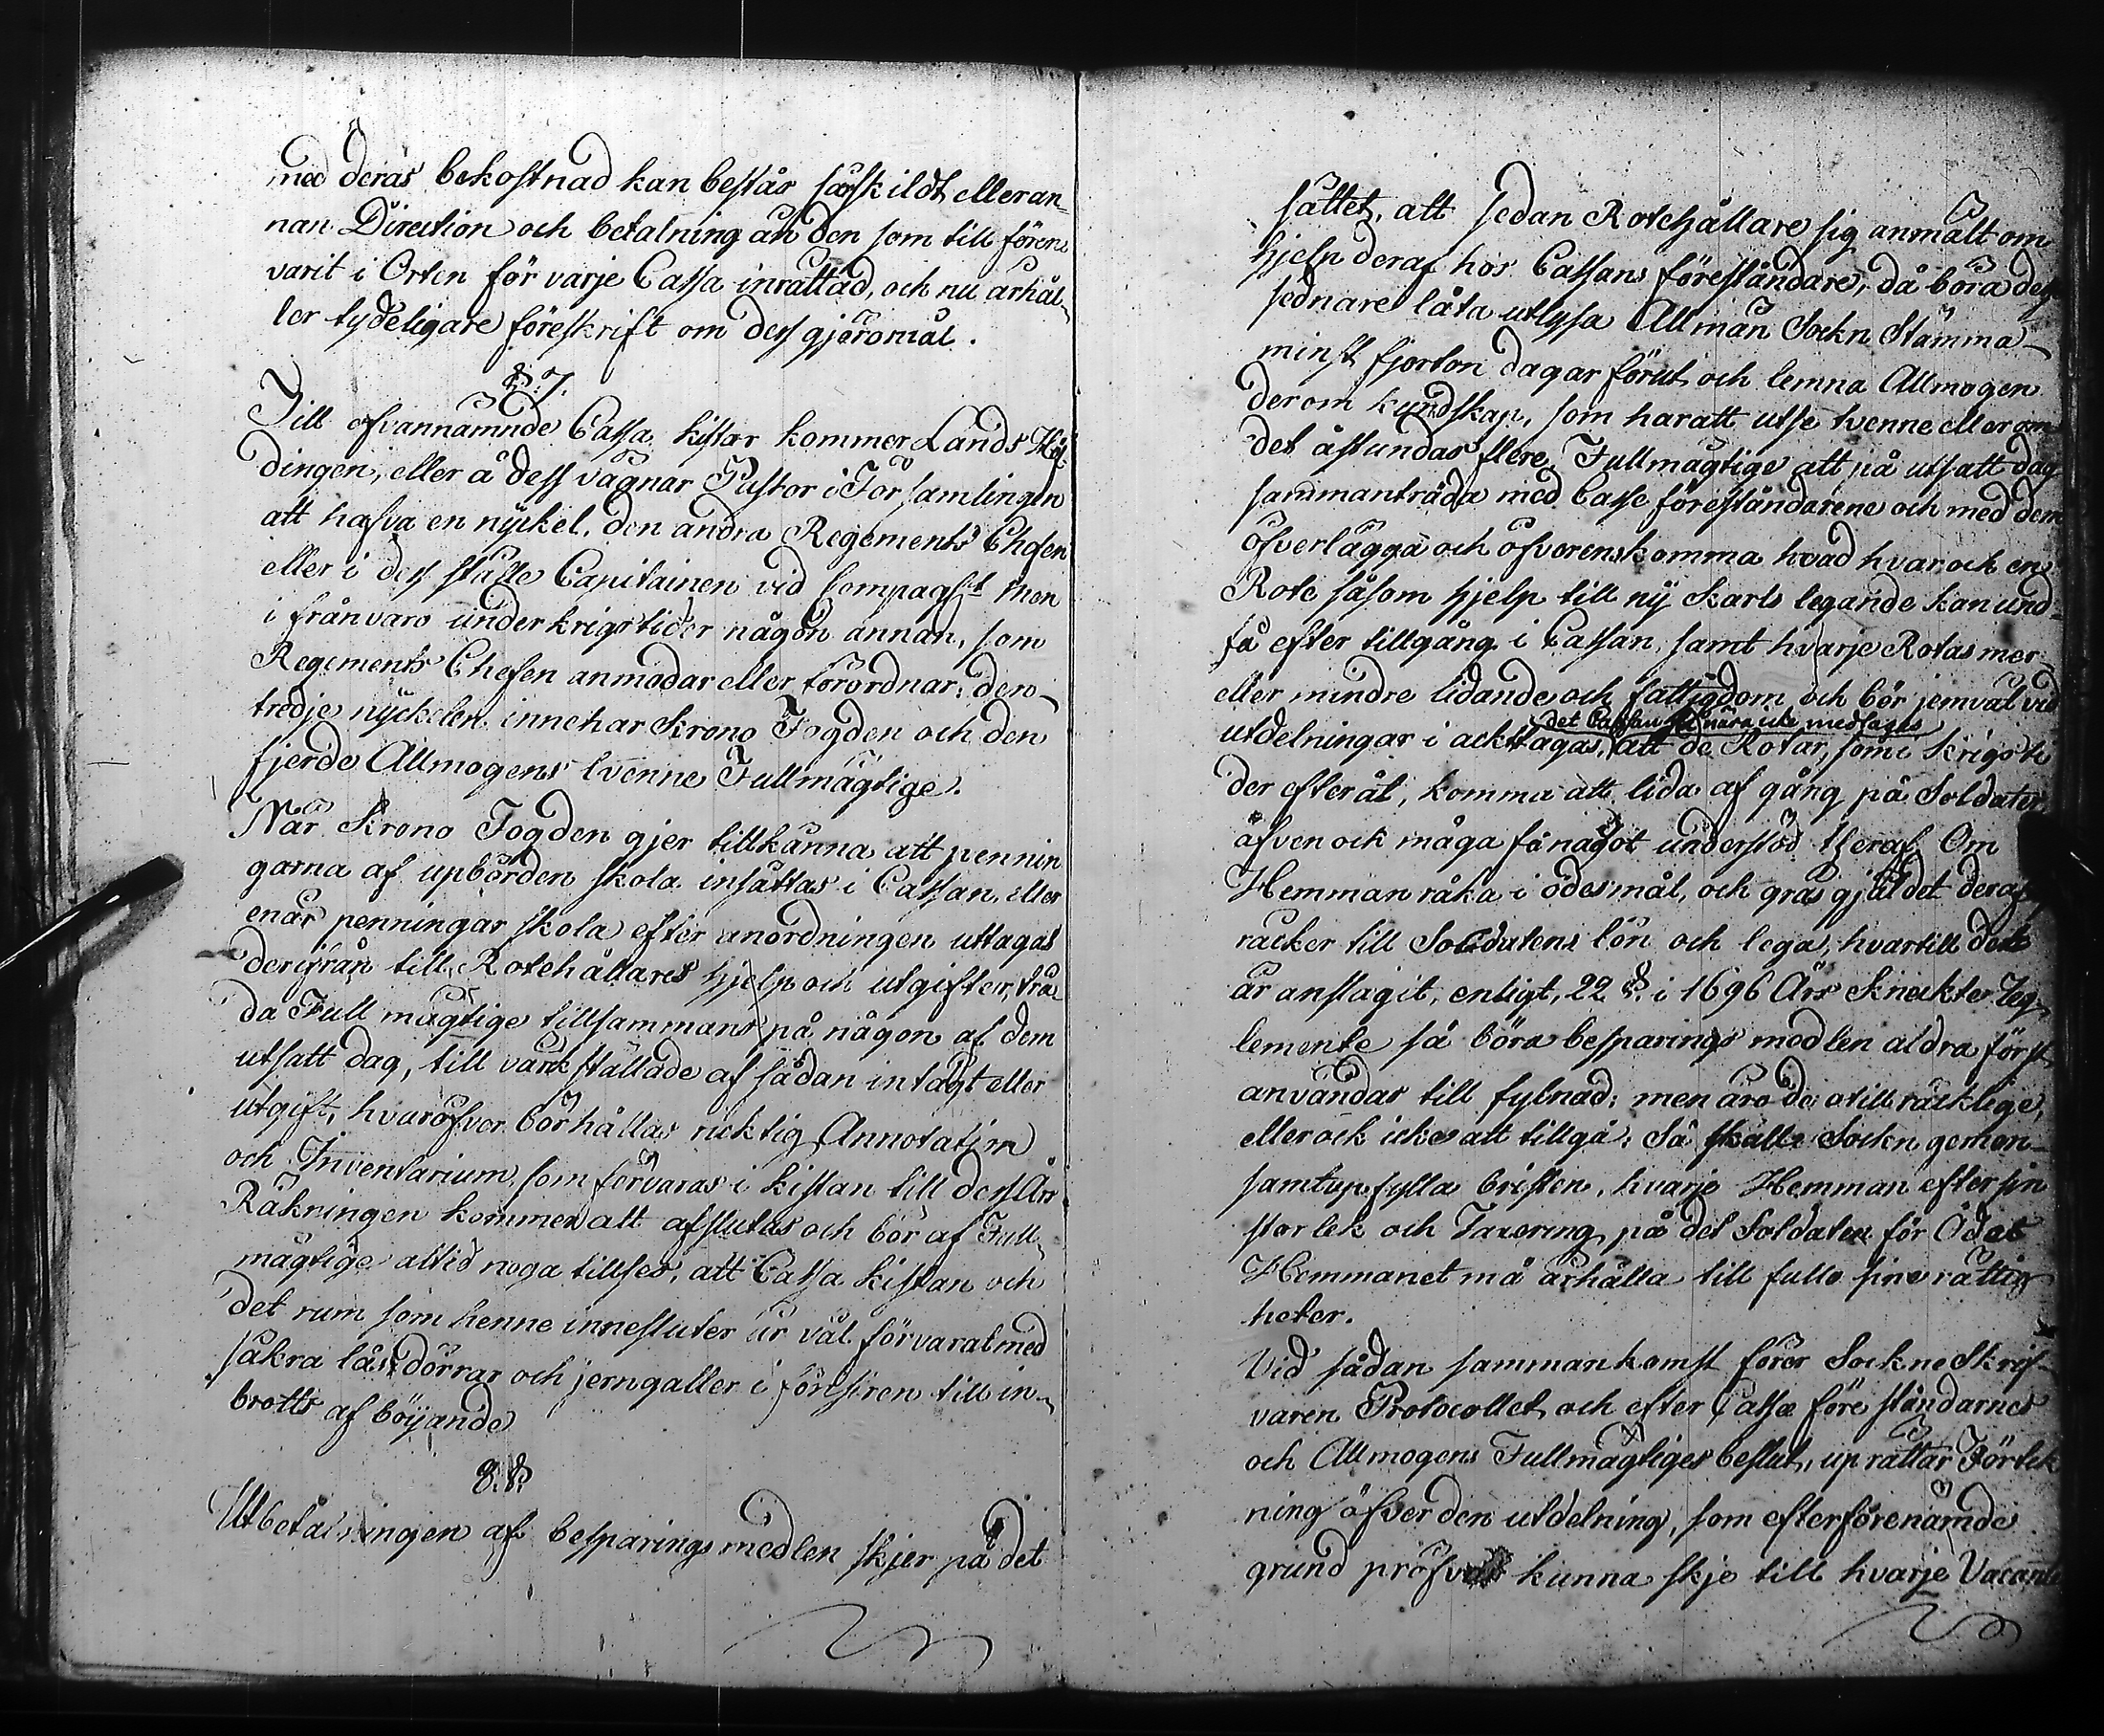 med deras bekostnad kan bestås särskildt eller an-
nan Direction och betalning än den som till förene
varit i Orten för varje Cassa inrättad, och nu ärhål-
ler tydeligare föreskrift om dess gjöromål.
§ 7.
Till ofvannämnde Cassa kistor kommer Lands Höf-
dingen, eller å dess vägnar Pastor i Församlingen
att hafva en nyckel, den andra Regements Chefen
eller i dess ställe Capitainen vid Compagt men
i frånvaro under krigstider någon annan, som
Regements Chefen anmodar eller förordnar; den
tredje nyckelen innehar Krono Fogden och den
fjerde Allmogens tvenne Fullmägtige.
När Krono Fogden gjer tillkänna att pennin
garna af upbörden skola insättas i Cassan, eller
enär penningar skola efter anordningen uttagas
derifrån till Rotehållares hjelp och utgifter, trä
da Fullmägtige tillsammans på någon af dem
utsatt dag, till värkställade af sådan intägt eller
utgift, hvaröfver bör hållas ricktig Annotation
och Inventarium, som förvaras i kistan till dess Års
Räkningen kommer att afslutas och bör af Full-
mägtige altid noga tillses, att Cassa kistan och
det rum som henne innesluter är väl förvarat med
säkra lås, dörrar och jerngaller i fönstren till in-
brotts af böijande
8. §.
Utbetalningen af besparings medlen skjer på det
sättet, att sedan Rotehållare sig anmält om
hjelp deraf hos Cassans föreståndare, då böra desse
sednare låta utlysa Allmän Sockn Stämma
minst fjorton dagar förut och lemna Allmogen
derom kundskap, som har att utse tvenne eller om
det åstundas flere, Fullmägtige att på utsatt dag
sammanträda med Casse föreståndarene och med dem
öfverlägga och öfverenskomma hvad hvar och en
Rote såsom hjelp till ny Karls legande kan und-
få efter tillgång i Cassan, samt hvarje Rotas mer
eller mindre lidande och fattigdom och bör jemväl vid
det Cassan nära ute medtages
utdelningar i ackttagas, att de Rotar, som i Krigsti
der efteråt, komma att lida af gång på Soldater
äfven ock måga få något understöd Heraf. Om
Hemman råka i ödesmål, och gräs gjäldet deraf ej
räcker till Soldatens lön och lega, hvartill dett
är anslagit, enligt, 22 §. i 1696 Års Kneckte Reg
lemente så böra besparings medlen aldra först
användas till fylnad; men äro de otillräcklige,
eller ock icke att tillgå; Så skall Sockn gemen-
samt upfylla bristen, hvarje Hemman efter sin
storlek och Taxering på det Soldaten för Ödes
Hemmanet må ärhålla till fullo sine rättig
heter.
Vid sådan sammankomst förer Sockne Skrif-
varen Protocollet, och efter Cassæ föreståndarnes
och Allmogens Fullmägtiges beslut, uprättar Förtek
ning öfver den utdelning, som efter förenämde
grund pröfvas kunna skje till hvarje Vacante